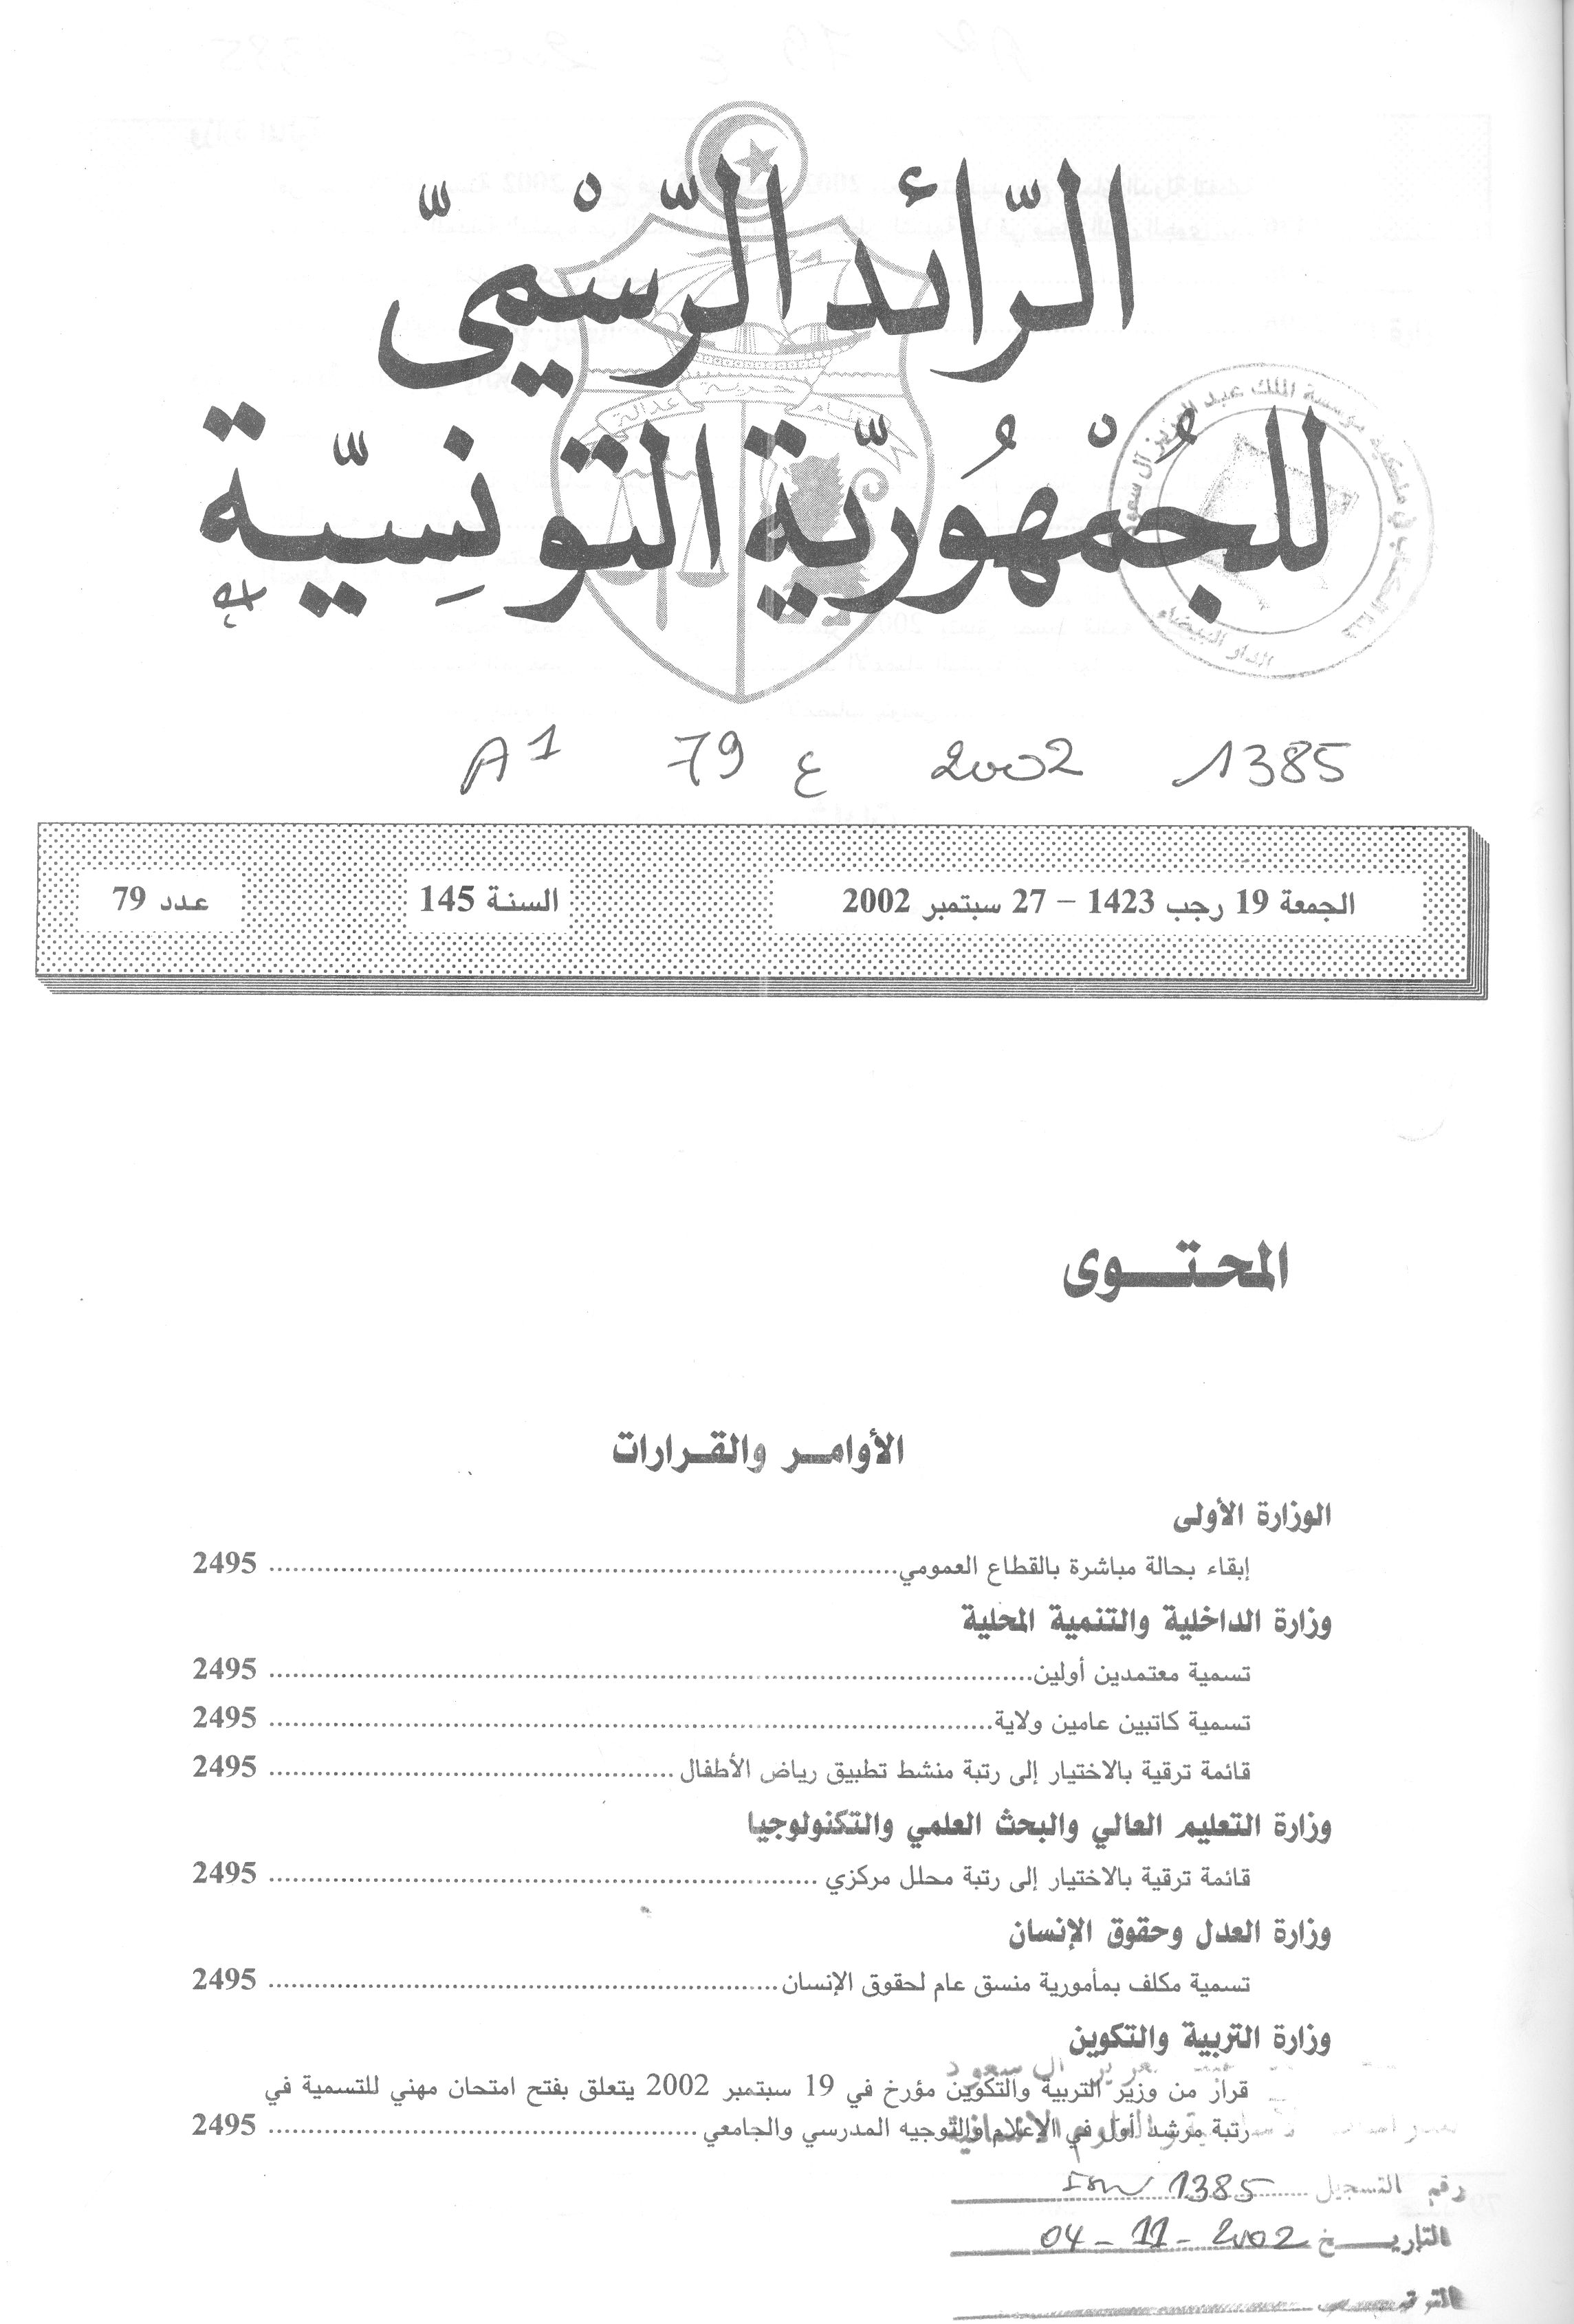 الرّائد الرّسْميّ
للجُمْهُوريّة التونِسيّة
نظام حرية عدالة
مؤسسة الملك عبد العزيز آل سعود
الدار البيضاء
A1 79 ع 2002 1385
الجمعة 19 رجب 1423 – 27 سبتمبر 2002 السنة 145 عدد 79
المحتوى
الأوامر والقرارات
الوزارة الأولى
إبقاء بحالة مباشرة بالقطاع العمومي ........ 2495
وزارة الداخلية والتنمية المحلية
تسمية معتمدين أولين ........ 2495
تسمية كاتبين عامين ولاية ........ 2495
قائمة ترقية بالاختيار إلى رتبة منشط تطبيق رياض الأطفال ........ 2495
وزارة التعليم العالي والبحث العلمي والتكنولوجيا
قائمة ترقية بالاختيار إلى رتبة محلل مركزي ........ 2495
وزارة العدل وحقوق الإنسان
تسمية مكلف بمأمورية منسق عام لحقوق الإنسان ........ 2495
وزارة التربية والتكوين
قرار من وزير التربية والتكوين مؤرخ في 19 سبتمبر 2002 يتعلق بفتح امتحان مهني للتسمية في
رتبة مرشد أول في الإعلام والتوجيه المدرسي والجامعي ........ 2495
آل سعود
رقم التسجيل 1385
التاريخ 2002 - 11 - 04